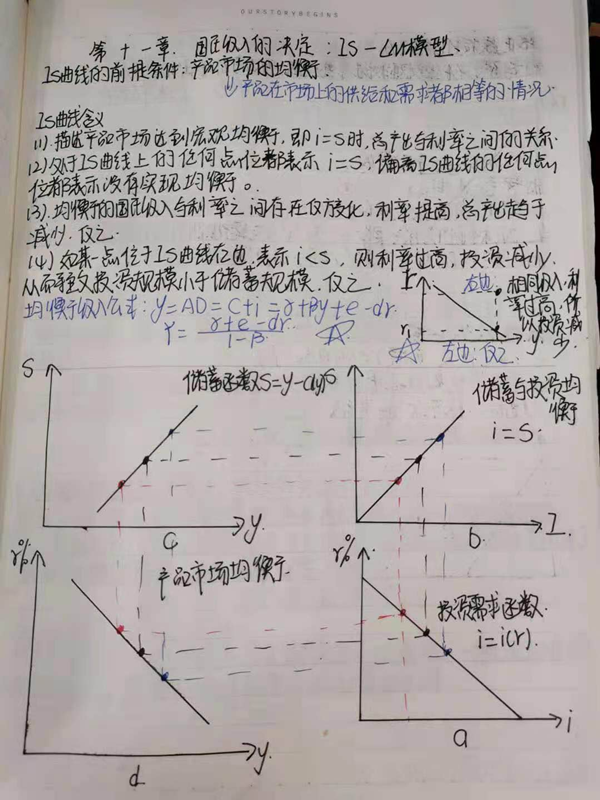 OURSTORYBEGINS
第十一章. 国民收入的决定：IS-LM模型.
IS曲线的前提条件：产品市场的均衡.
↓产品在市场上的供给和需求都相等的情况.
IS曲线含义
(1).描述产品市场达到宏观均衡,即i=s时,总产出与利率之间的关系.
(2)处于IS曲线上的任何点位都表示i=s,偏离IS曲线的任何点
位都表示没有实现均衡。
(3).均衡的国民收入与利率之间存在反方变化,利率提高,总产出趋于
减少.反之.
(4)如某一点位于IS曲线右边.表示i<s,则利率过高,投资减少.
从而导致投资规模小于储蓄规模.反之.
均衡收入公式：y=AD=C+i=α+βy+e-dr.
Y=α+e-dr./1-β
r
右边
相同收入,利
率过高,所
以投资减
少.
r₁
y
左边反之.
S
储蓄函数S=y-c(y)
y.
c
储蓄与投资均
衡
i=s.
I.
b.
r%
产品市场均衡
y.
d
r%
投资需求函数.
i=i(r).
i
a